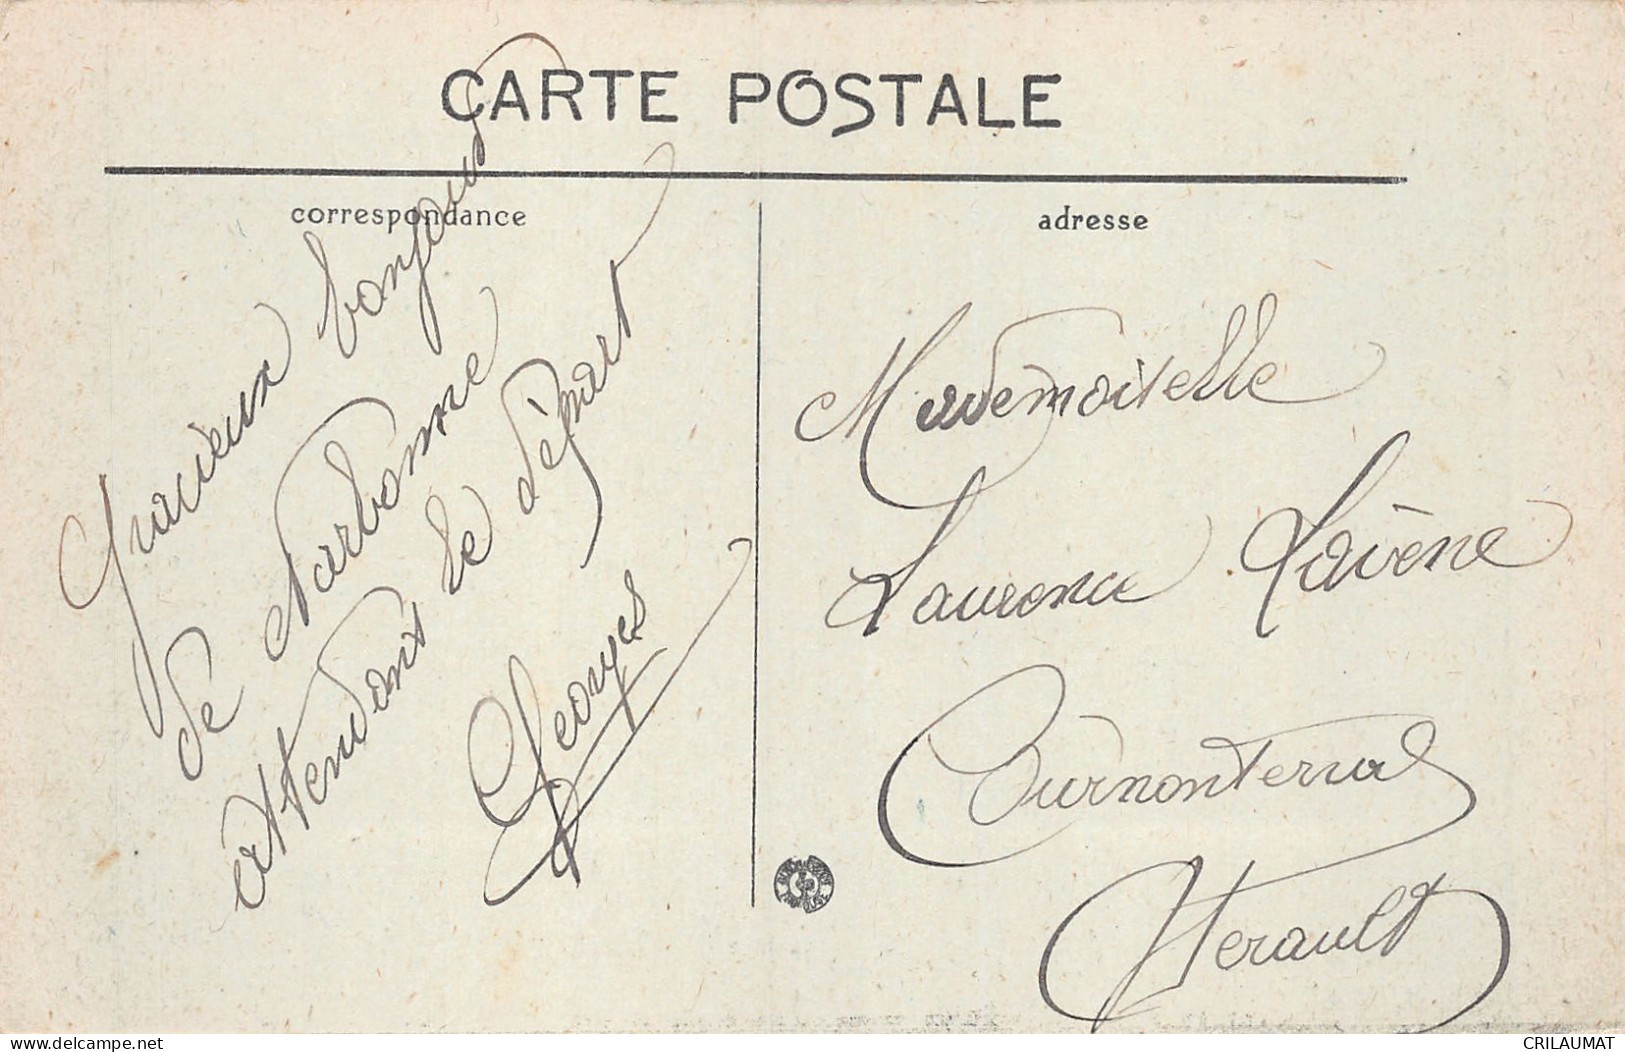 CARTE POSTALE
correspondance
adresse
Gracieux bonjour
de Narbonne
attendant le départ
Georges
Mademoiselle
Laurence Lavène
Cournonterral
Herault
www.delcampe.net
CRILAUMAT